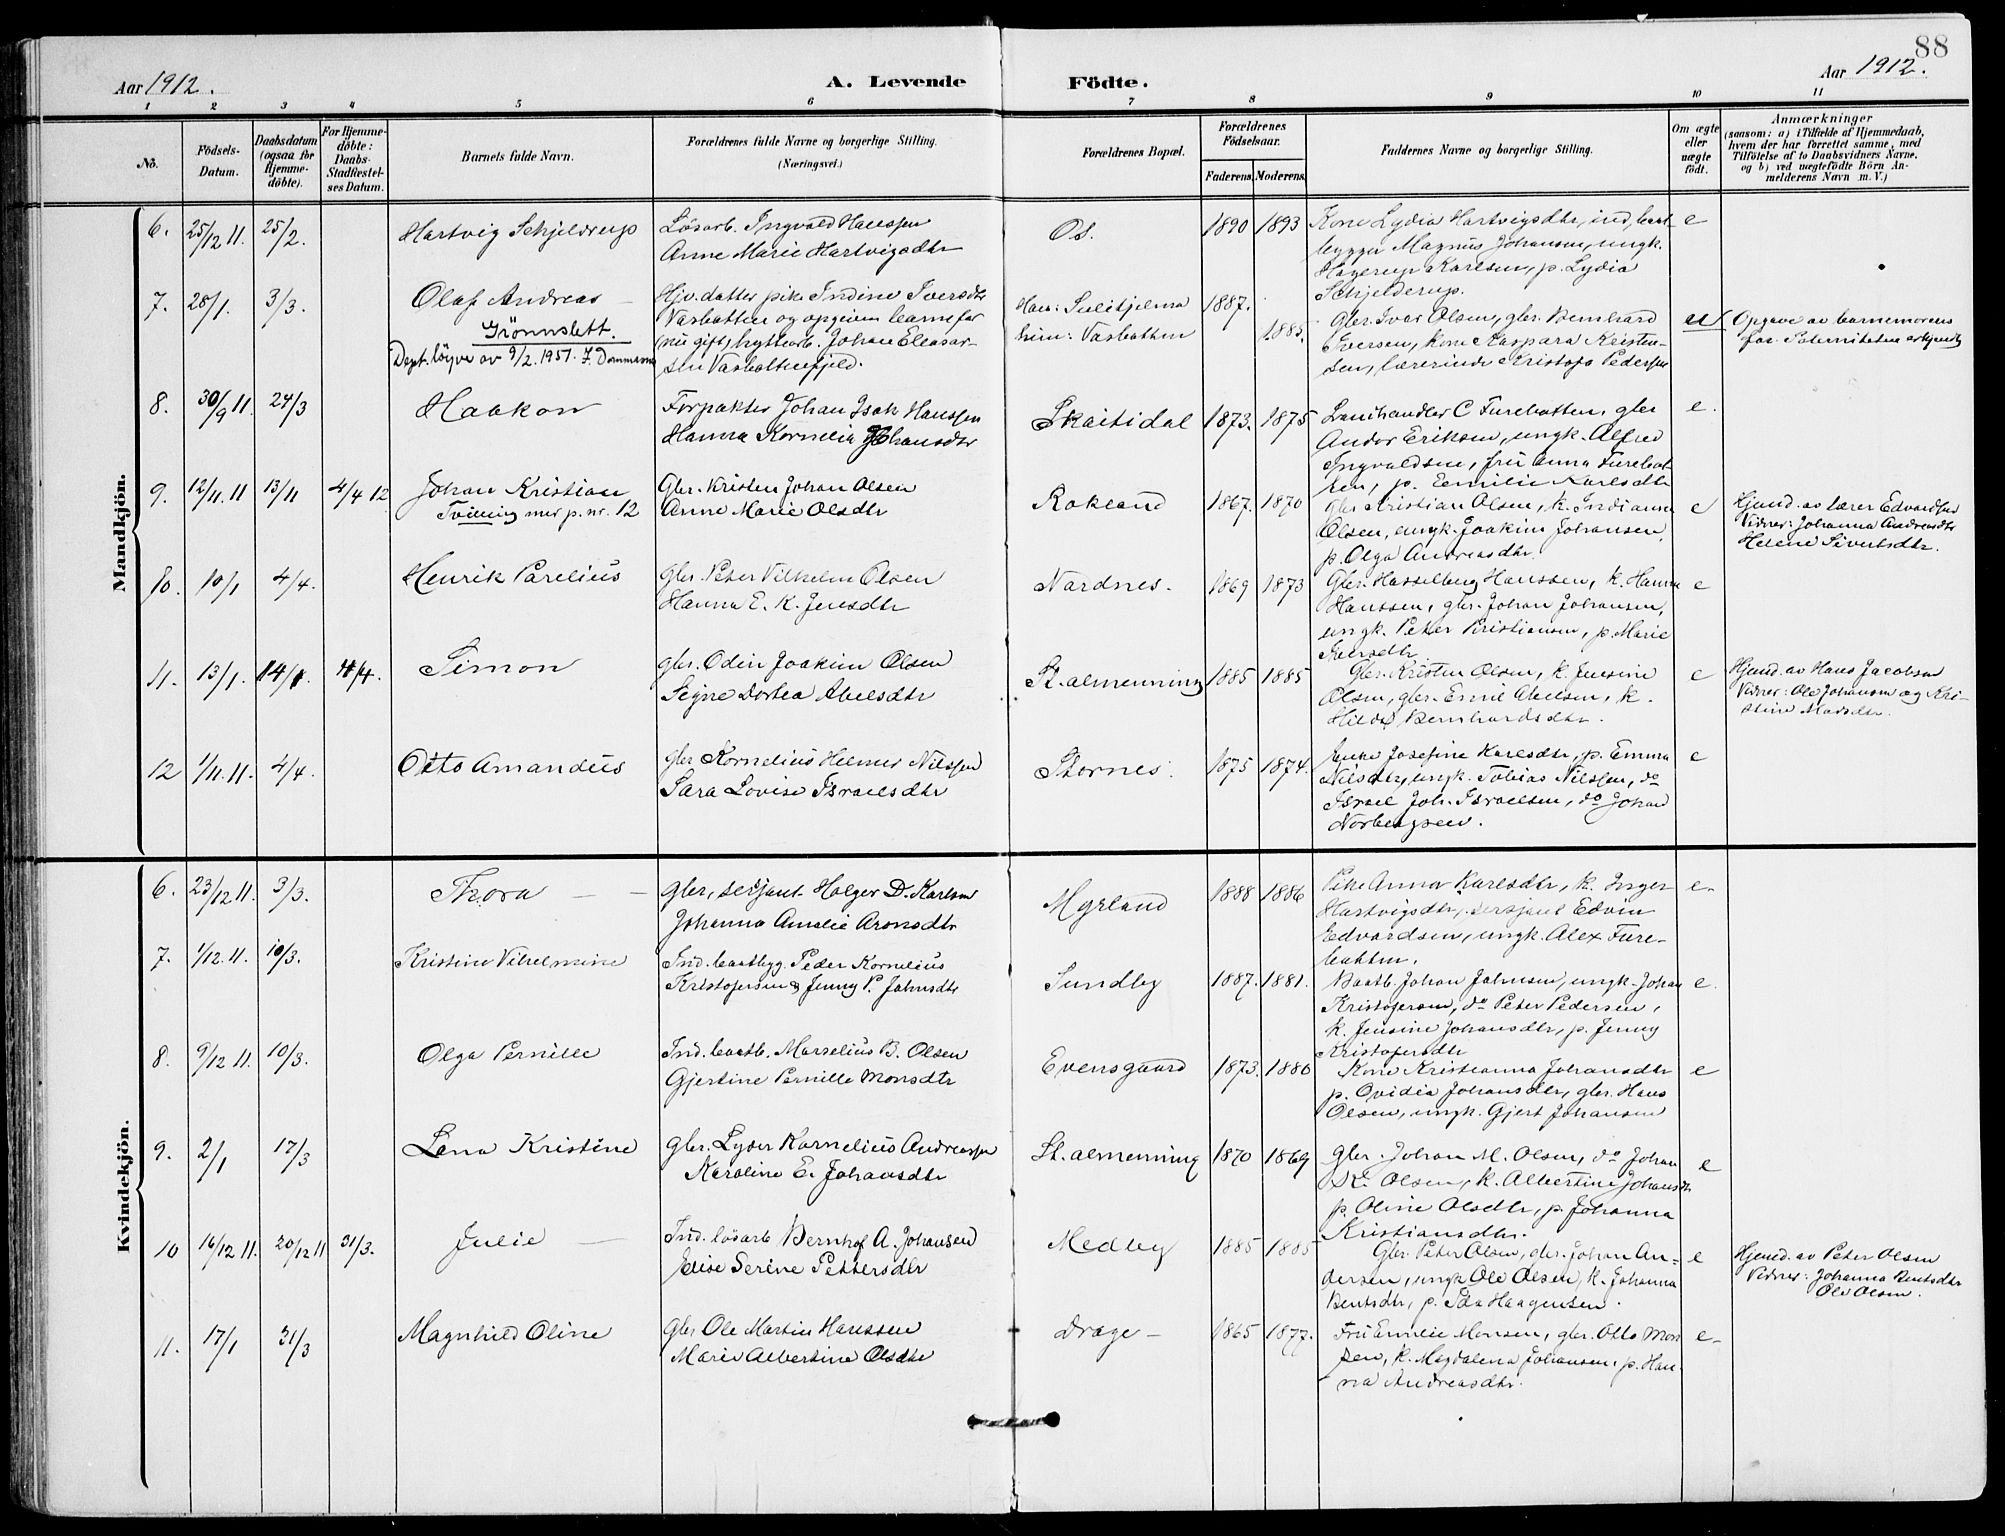 88
Aar 1912.
A. Levende Födte.
Aar 1912.
1 2 3 4 5 6 7 8 9 10 11
No.
Födsels-Datum.
Daabsdatum (ogsaa for Hjemme-döbte).
For Hjemme-döbte: Daabs-Stadfæstel-ses Datum.
Barnets fulde Navn.
Forældrenes fulde Navne og borgerlige Stilling.
(Næringsvei.)
Forældrenes Bopæl.
Forældrenes Födselsaar.
Faderens. Moderens.
Faddernes Navne og borgerlige Stilling.
Om ægte eller uægte födt.
Anmærkninger
(saasom: a) i Tilfælde af Hjemmedaab,
hvem der har forrettet samme, med
Tilföielse af to Daabsvidners Navne,
og b) ved uægtefödte Börn An-
melderens Navn m. V.)
Mandkjön.
6. 25/12 11. 25/2. Hartvig Schjeldrup
Løsarb. Ingvald Hanssen
Anne Marie Hartvigsdtr
Os. 1890 1893
Kone Lydia Hartvigsdtr, ind, baat-
bygger Magnus Johansen, ungk.
Hagerup Karlsen, p. Lydia
Schjelderup.
e
7. 28/1. 3/3. Olaf Andreas
Grönnslett.
Dept. löyve av 9/2. 1951.
Hjv. datter pike Indine Iversdtr
Vasbotten og opgiven barnefar
(nu gift) hyttearb. Johan Eleasar-
sen Vasbottenfjeld.
Han: Sulitjelma
hun: Vasbotten
1887. 1885.
Gbr. Ivar Olsen, gbr. Bernhard
Iversen, kone Kaspara Kristen-
sen, lærerinde Kristofa Pedersen
u
Opgave av barnemoren
8. 30/9 11. 24/3 Haakon
Forpakter Johan Isak Hanssen
Hanna Kornelia Johansdtr
Skaitidal 1873. 1875
Landhandler C Furebotten, gbr
Andor Eriksen, ungk. Alfred
Ingvaldsen, fru Anna Furebot-
ten, p. Emilie Karlsdtr
e.
9. 12/11. 11 13/11 4/4 12 Johan Kristian
Tvilling mer p. nr. 12
Gbr. Kristen Johan Olsen
Anne Marie Olsdtr
Rokland 1867. 1870
gbr Kristian Olsen, k. Indiana
Olsen, ungk. Joakim Johansen,
p. Olga Andreasdtr.
e
Hjemd. av lærer Edvardsen
Vidner: Johanna Andreasdtr
Helene Sivertsdtr.
10. 10/1 4/4. Henrik Parelius
gbr. Peter Vilhelm Olsen
Hanna E. K. Jensdtr
Nordnes. 1869 1873
Gbr. Hasselberg Hanssen, k. Hanna
Hanssen, gbr. Johan Johansen,
ungk. Peter Kristiansen, p. Marie
Iversdtr
e
11. 13/1. 14/1. 4/4. Simon
gbr. Odin Joakim Olsen
Segne Dortea Abelsdtr
St. almenning 1885 1885
Gbr. Kristen Olsen, k. Jensine
Olsen, gbr. Emil Abelsen, k.
Hilda Bernhardsdtr.
e
Hjemd. av Hans Jacobsen
Vidner: Ole Johansen og Kri-
stine Madsdtr.
12 1/11. 11. 4/4. Otto Amandus
gbr Kornelius Helmer Nilssen
Sara Lovise Israelsdtr
Stornes. 1875 1874.
Enke Josefine Karlsdtr, p. Emma
Nilsdtr, ungk. Tobias Nilssen, do
Israel Joh. Israelsen, do Johan
Norbergsen.
e
Kvindekjön.
6. 23/12 11. 3/3. Thora
gbr, serjant Holger D. Karlsen
Johanna Amalie Aronsdtr
Myrland 1888 1886
Pike Anna Karlsdtr, k. Inger
Hartvigsdtr, sersjant Edvin
Edvardsen, ungk. Alex Fure-
botten.
e.
7. 1/12. 11. 10/3. Kristine Vilhelmine
Ind. baatbyg. Peder Kornelius
Kristofersen & Jenny P. Jahnsdtr
Sundby 1887. 1881.
Baatb. Johan Jahnsen, ungk. Johan
Kristofersen, do Peter Pedersen,
k. Jensine Johansdtr, p. Jenny
Kristofersdtr
e.
8. 9/12 11. 10/3. Olga Pernille
Ind. baatb. Marselius B. Olsen
Gjertine Pernille Monsdtr
Evensgaard 1873. 1880
Kone Kristianna Johansdtr
p. Ovidia Johansdtr, gbr. Hans
Olsen, ungk. Gjert Johansen
e
9. 2/1 17/3 Lena Kristine
gbr. Lyder Kornelius Andreassen
Karoline E. Johansdtr
St. almenning 1870 1869
Gbr. Johan M. Olsen, do Johan
K. Olsen, k. Albertine Johansdtr
p. Oline Olsdtr, p. Johanna
Kristiansdtr.
e
10 16/12 11. 20/12 11 31/3. Julie
Ind. løsarb Bernhof A. Johansen
Elise Serine Pettersdtr
Medby 1885 1885
Gbr. Peter Olsen, gbr. Johan An-
dersen, ungk Ole Olsen, k. Johanna
Bentsdtr, p. Ida Haagensen.
e
Hjemd. av Peter Olsen
Vidner: Johanna Bentsdtr
Ole Olsen.
11. 17/1 31/3 Magnhild Oline
Gbr Ole Martin Hanssen
Marie Albertine Olsdtr
Drage 1865 1877.
Fru Emilie Monsen, gbr. Otto Mon
sen, k. Magdalena Johansen, p. Han-
na Andreasdtr.
e